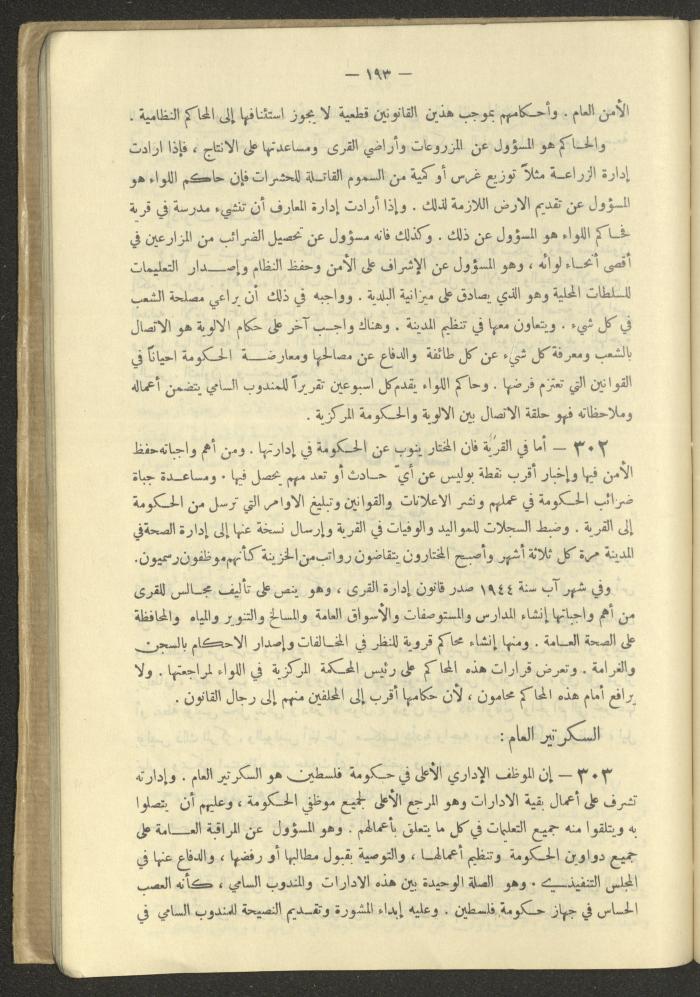 — ١٩٣ —
الأمن العام . وأحكامهم بموجب هذين القانونين قطعية لا يجوز استئنافها إلى المحاكم النظامية .
والحاكم هو المسؤول عن المزروعات وأراضي القرى ومساعدتها على الانتاج ، فإذا ارادت
إدارة الزراعة مثلاً توزيع غرس أو كمية من السموم القاتلة للحشرات فإن حاكم اللواء هو
المسؤول عن تقديم الارض اللازمة لذلك . وإذا أرادت إدارة المعارف أن تنشيء مدرسة في قرية
فحاكم اللواء هو المسؤول عن ذلك . وكذلك فانه مسؤول عن تحصيل الضرائب من المزارعين في
أقصى أنحاء لوائه ، وهو المسؤول عن الإشراف على الأمن وحفظ النظام وإصدار التعليمات
للسلطات المحلية وهو الذي يصادق على ميزانية البلدية . وواجبه في ذلك أن يراعي مصلحة الشعب
في كل شيء . ويتعاون معها في تنظيم المدينة . وهناك واجب آخر على حكام الالوية هو الاتصال
بالشعب ومعرفة كل شيء عن كل طائفة والدفاع عن مصالحها ومعارضة الحكومة احياناً في
القوانين التي تعتزم فرضها . وحاكم اللواء يقدم كل اسبوعين تقريراً للمندوب السامي يتضمن أعماله
وملاحظاته فهو حلقة الاتصال بين الالوية والحكومة المركزية .
٣٠٢ — أما في القرية فان المختار ينوب عن الحكومة في إدارتها . ومن أهم واجباته حفظ
الأمن فيها وإخبار أقرب نقطة بوليس عن أيّ حادث أو تعد مهم يحصل فيها . ومساعدة جباة
ضرائب الحكومة في عملهم ونشر الاعلانات والقوانين وتبليغ الاوامر التي ترسل من الحكومة
إلى القرية . وضبط السجلات للمواليد والوفيات في القرية وإرسال نسخة عنها إلى إدارة الصحة في
المدينة مرة كل ثلاثة أشهر وأصبح المختارون يتقاضون رواتب من الخزينة كأنهم موظفون رسميون.
وفي شهر آب سنة ١٩٤٤ صدر قانون إدارة القرى ، وهو ينص على تأليف مجالس للقرى
من أهم واجباتها إنشاء المدارس والمستوصفات والأسواق العامة والمسالخ والتنوير والمياه والمحافظة
على الصحة العامة . ومنها إنشاء محاكم قروية للنظر في المخالفات وإصدار الاحكام بالسجن
والغرامة . وتعرض قرارات هذه المحاكم على رئيس المحكمة المركزية في اللواء لمراجعتها . ولا
يرافع أمام هذه المحاكم محامون ، لأن حكامها أقرب إلى المحلفين منهم إلى رجال القانون .
السكرتير العام :
٣٠٣ — إن الموظف الإداري الأعلى في حكومة فلسطين هو السكرتير العام . وإدارته
تشرف على أعمال بقية الادارات وهو المرجع الأعلى لجميع موظفي الحكومة ، وعليهم أن يتصلوا
به ويتلقوا منه جميع التعليمات في كل ما يتعلق بأعمالهم . وهو المسؤول عن المراقبة العامة على
جميع دواوين الحكومة وتنظيم أعمالها ، والتوصية بقبول مطالبها أو رفضها ، والدفاع عنها في
المجلس التنفيذي . وهو الصلة الوحيدة بين هذه الادارات والمندوب السامي ، كأنه العصب
الحساس في جهاز حكومة فلسطين . وعليه إبداء المشورة وتقديم النصيحة للمندوب السامي في